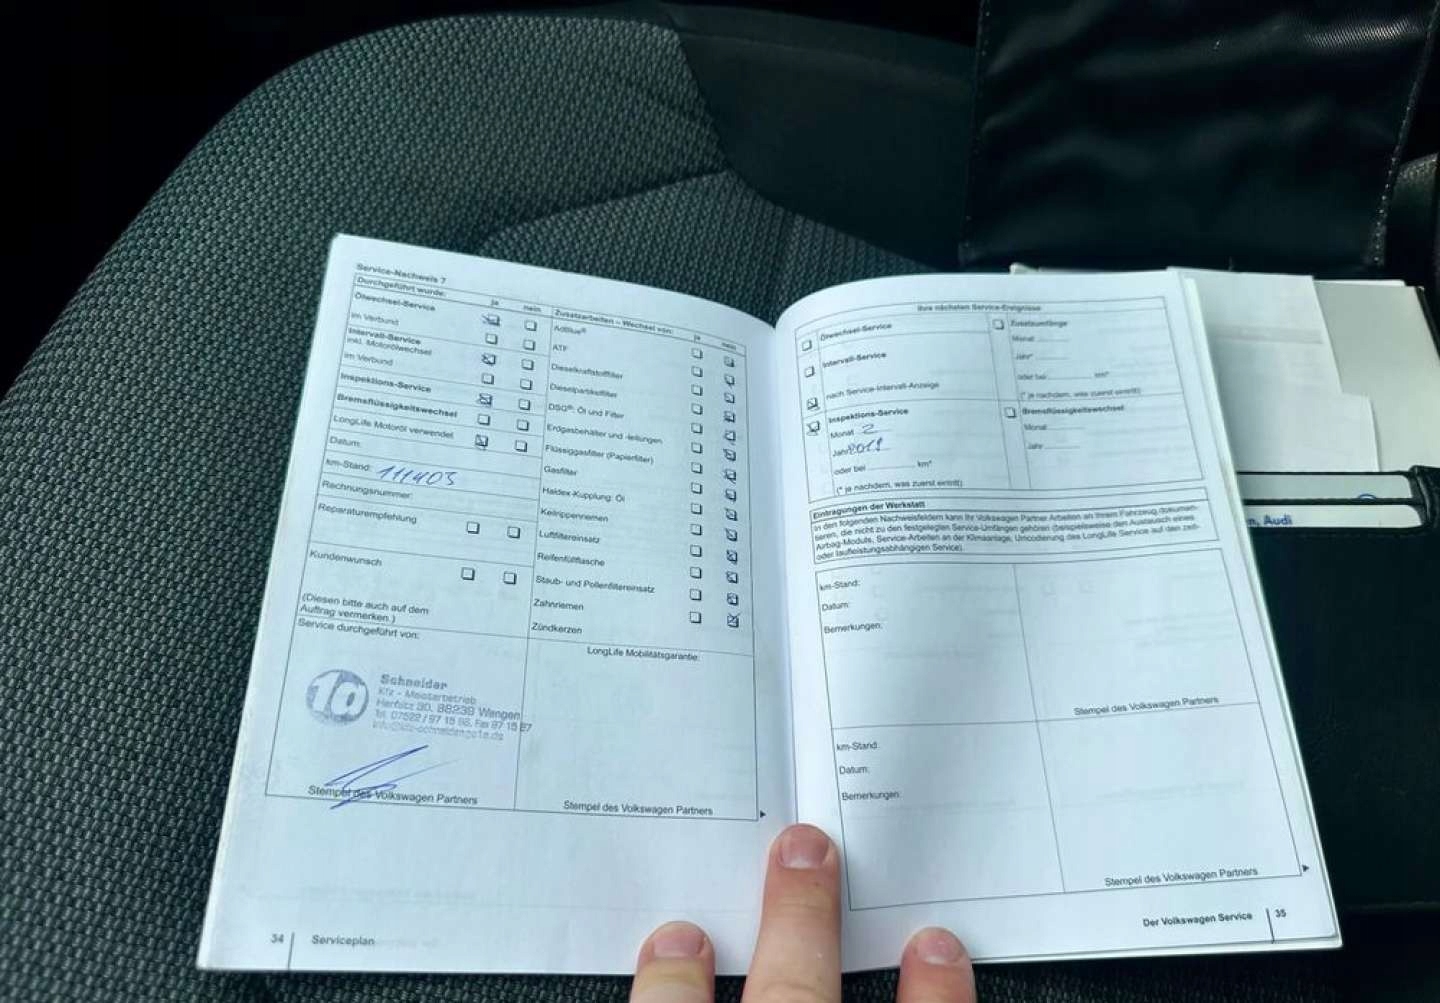 Service-Nachweis 7
Durchgeführt wurde:
ja
nein
Ölwechsel-Service
im Verbund
Intervall-Service
inkl. Motorölwechsel
im Verbund
Inspektions-Service
Bremsflüssigkeitswechsel
LongLife Motoröl verwendet
Datum:
km-Stand: 111403
Rechnungsnummer:
Reparaturempfehlung
Kundenwunsch
(Diesen bitte auch auf dem
Auftrag vermerken.)
Service durchgeführt von:
10
Schneider
Kfz - Meisterbetrieb
Herfatz 30, 88239 Wangen
Tel. 07522 / 97 15 86, Fax 97 15 87
Stempel des Volkswagen Partners
Zusatzarbeiten – Wechsel von:
ja
nein
AdBlue®
ATF
Dieselkraftstofffilter
Dieselpartikelfilter
DSG®: Öl und Filter
Erdgasbehälter und -leitungen
Flüssiggasfilter (Papierfilter)
Gasfilter
Haldex-Kupplung: Öl
Keilrippenriemen
Luftfiltereinsatz
Reifenfüllflasche
Staub- und Pollenfiltereinsatz
Zahnriemen
Zündkerzen
LongLife Mobilitätsgarantie:
Stempel des Volkswagen Partners
34
Serviceplan
Ihre nächsten Service-Ereignisse
Ölwechsel-Service
Intervall-Service
nach Service-Intervall-Anzeige
Inspektions-Service
Monat 2
Jahr 2019
oder bei km*
(* je nachdem, was zuerst eintritt)
Zusatzumfänge
Monat
Jahr*
oder bei km*
(* je nachdem, was zuerst eintritt)
Bremsflüssigkeitswechsel
Monat
Jahr
Eintragungen der Werkstatt
In den folgenden Nachweisfeldern kann Ihr Volkswagen Partner Arbeiten an Ihrem Fahrzeug dokumen-
tieren, die nicht zu den festgelegten Service-Umfängen gehören (beispielsweise den Austausch eines
Airbag-Moduls, Service-Arbeiten an der Klimaanlage, Umcodierung des LongLife Service auf den zeit-
oder laufleistungsabhängigen Service).
km-Stand:
Datum:
Bemerkungen:
Stempel des Volkswagen Partners
km-Stand:
Datum:
Bemerkungen:
Stempel des Volkswagen Partners
Der Volkswagen Service
35
n, Audi